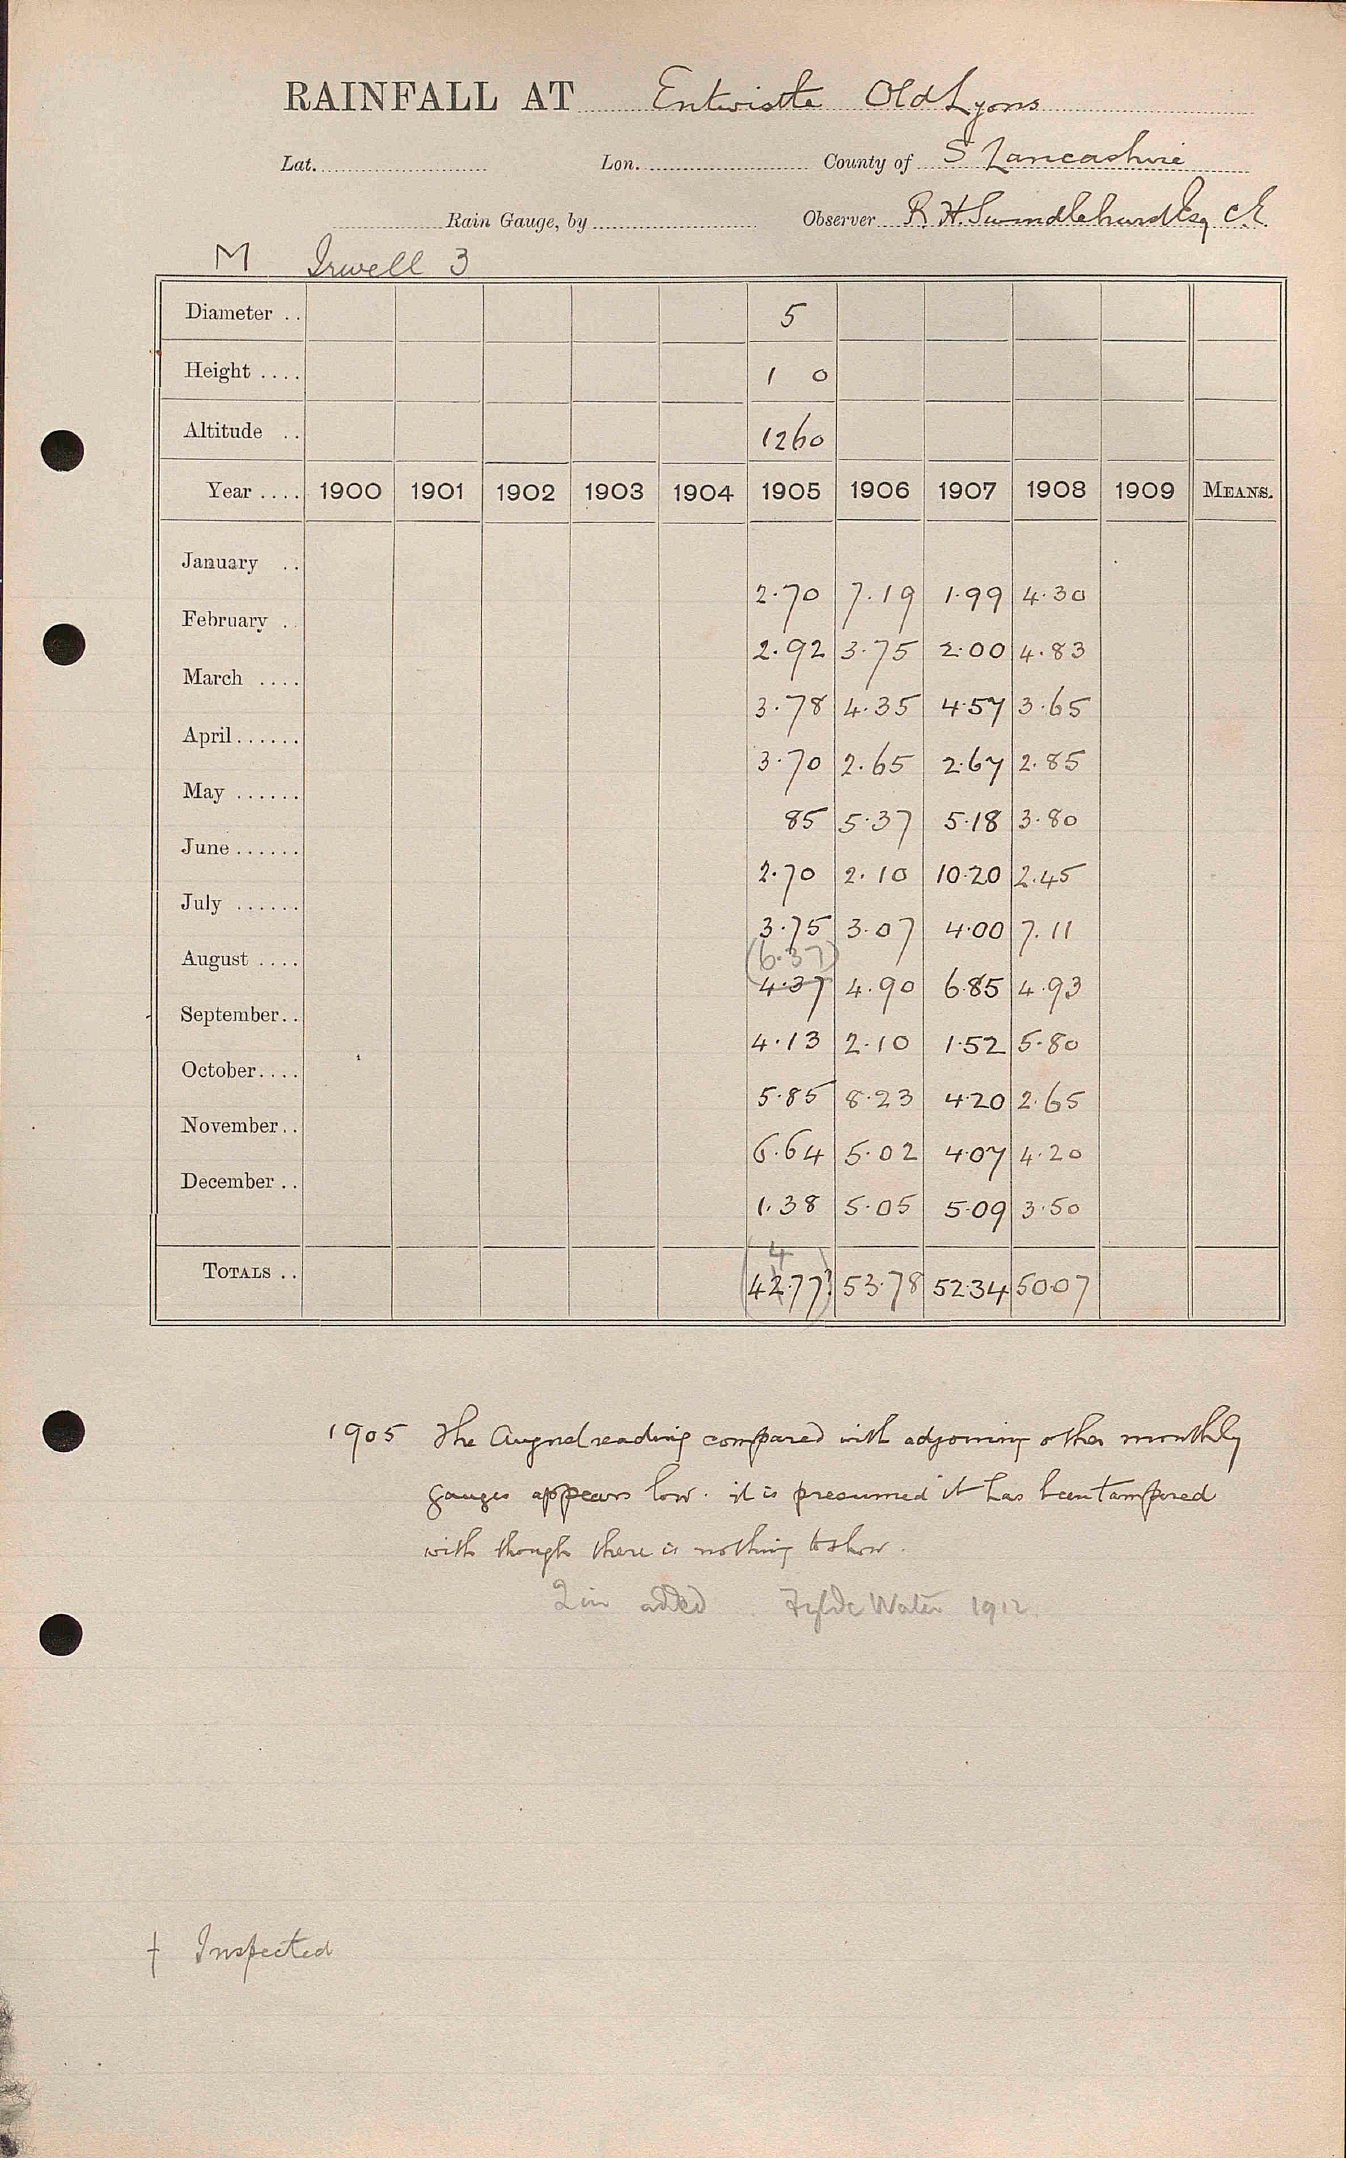 RAINFALL AT Entwistle Old Lyons
Lat. Lon. County of S Lancashire
Rain Gauge, by Observer R. H. Swindlehurst Esq C.E.
M Irwell 3
Diameter .. 5
Height .... 1 0
Altitude .. 1260
Year .... 1900 1901 1902 1903 1904 1905 1906 1907 1908 1909 MEANS.
January .. 2.70 7.19 1.99 4.30
February .. 2.92 3.75 2.00 4.83
March .... 3.78 4.35 4.57 3.65
April ...... 3.70 2.65 2.67 2.85
May ...... 85 5.37 5.18 3.80
June ...... 2.70 2.10 10.20 2.45
July ...... 3.75 3.07 4.00 7.11
(6.37)
August .... 4.37 4.90 6.85 4.93
September .. 4.13 2.10 1.52 5.80
October .... 5.85 8.23 4.20 2.65
November .. 6.64 5.02 4.07 4.20
December .. 1.38 5.05 5.09 3.50
4
TOTALS .. (42.77?) 53.78 52.34 50.07
1905 The August reading compared with adjoining other monthly
gauges appears low. it is presumed it has been tampered
with though there is nothing to show.
2 in added Fylde Water 1912.
† Inspected